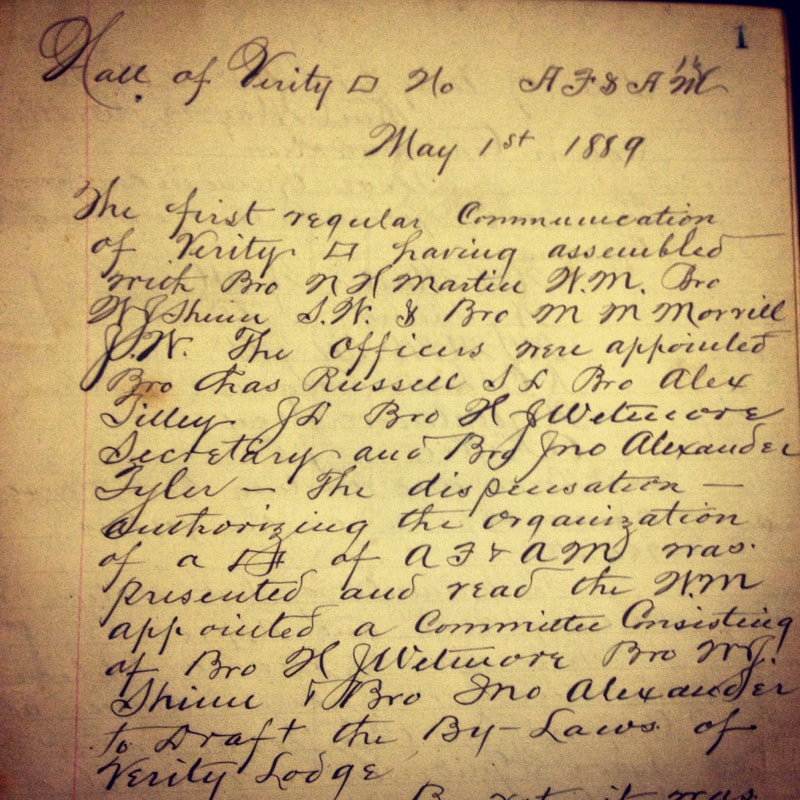 1
Hall of Verity ▱ No A F & A M
May 1st 1889
The first regular Communication
of Verity ▱ having assembled
with Bro N H Martin W.M. Bro
W J Shinn S.W. & Bro M M Morrill
J.W. The Officers were appointed
Bro Chas Russell S D Bro Alex
Tilley J D Bro H J Wetmore
Secretary and Bro Jno Alexander
Tyler — The dispensation —
authorizing the organization
of a ▱ of A F & A M was
presented and read the W.M
appointed a Committee Consisting
of Bro H J Wetmore Bro W J.
Shinn & Bro Jno Alexander
to Draft the By-Laws of
Verity Lodge
it was